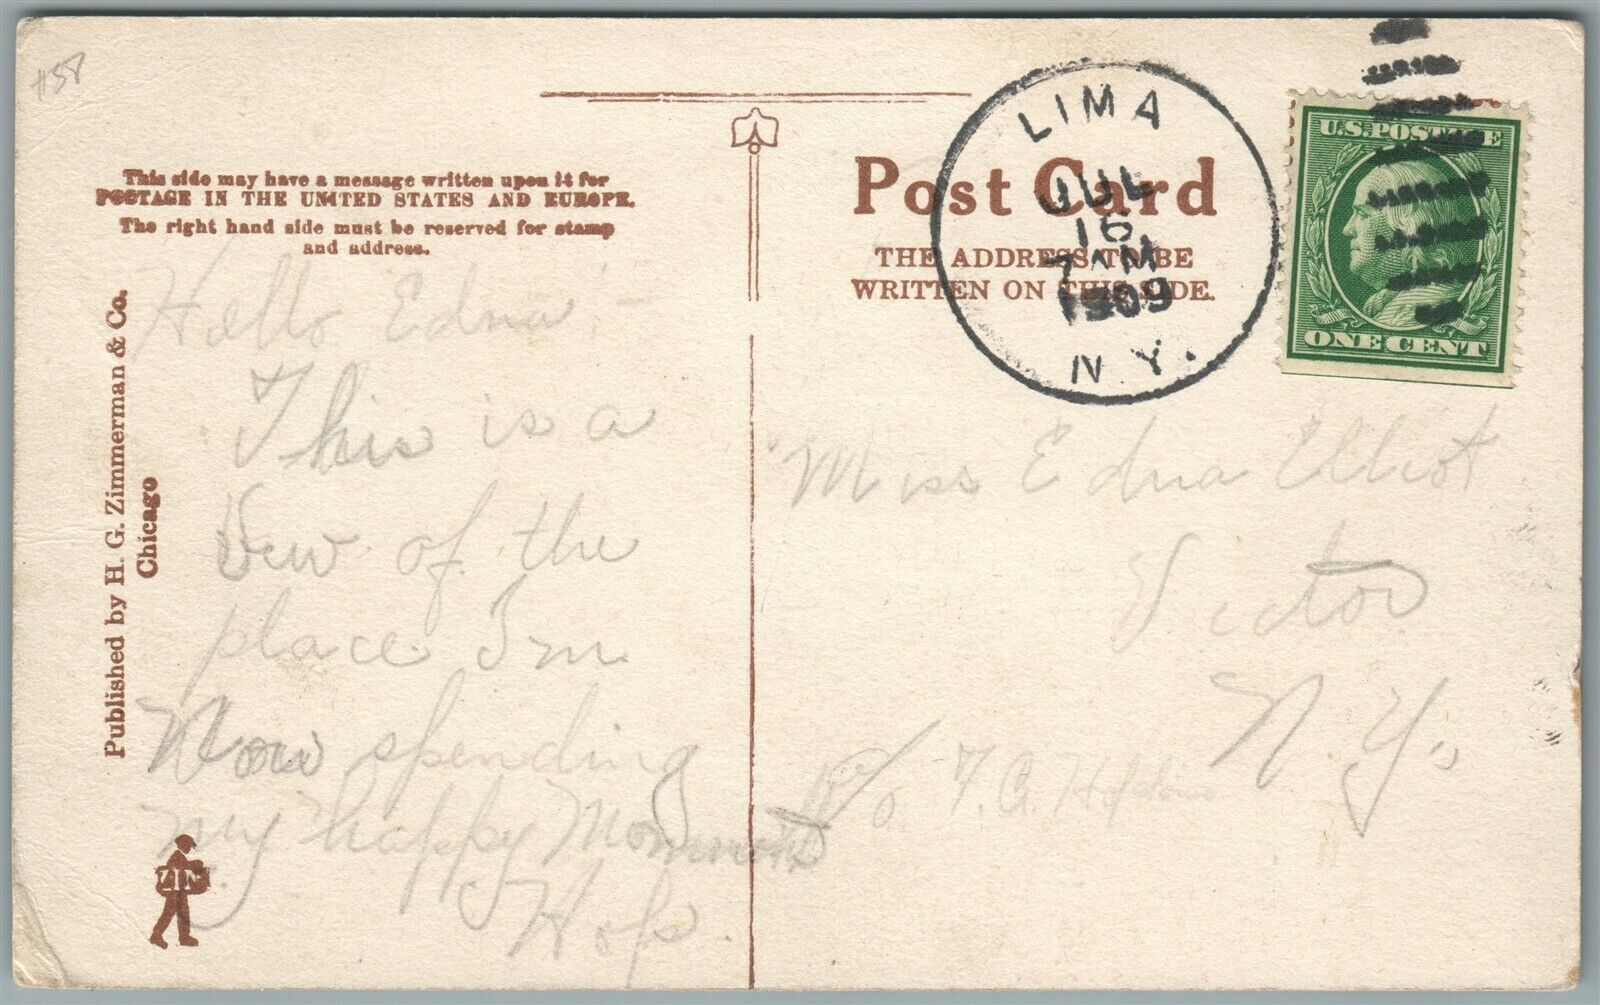 #58
This side may have a message written upon it for
POSTAGE IN THE UNITED STATES AND EUROPE.
The right hand side must be reserved for stamp
and address.
Published by H. G. Zimmerman & Co.
Chicago
Hello Edna! -
This is a
Vew of the
place I'm
Now spending
my happy Momments
Hops.
ZIM.
Post Card
THE ADDRESS TO BE
WRITTEN ON THIS SIDE.
LIMA
JUL
16
7 AM
1909
N.Y.
U.S. POSTAGE
ONE CENT
Miss Edna Elliot
Victor
N.Y.
c/o F. A.